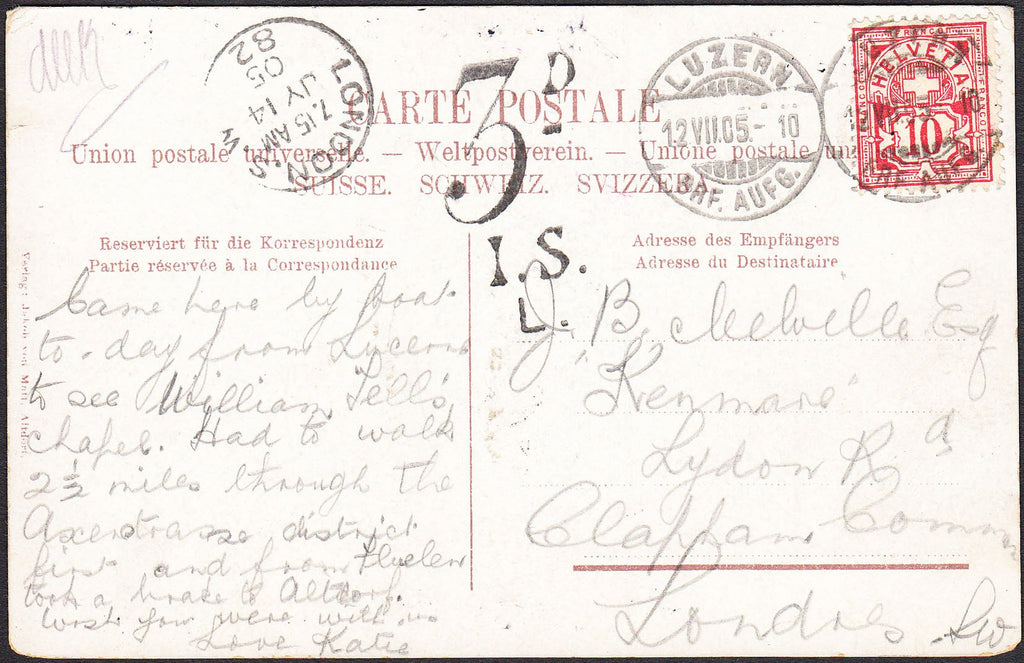 LONDON. S.W
7.15 AM
JY 14
05
82
3D
I.S.
L.
LUZERN
12.VII.05.-10
BRF. AUFG.
FRANCO
HELVETIA
10
CARTE POSTALE
Union postale universelle. — Weltpostverein. — Unione postale uni
SUISSE. SCHWEIZ. SVIZZERA.
Reserviert für die Korrespondenz
Partie réservée à la Correspondance
Came here by boat
to-day from Lucerne
to see William Tell's
chapel. Had to walk
2½ miles through the
Axenstrasse district
first and from Fluelen
took a brake to Altdorf.
Wish you were with us
Love Katie
Adresse des Empfängers
Adresse du Destinataire
J. B. Melville Esq
"Kenmare"
Lydon Rd
Clapham Common
Londres SW
Verlag: Jakob von Matt, Altdorf